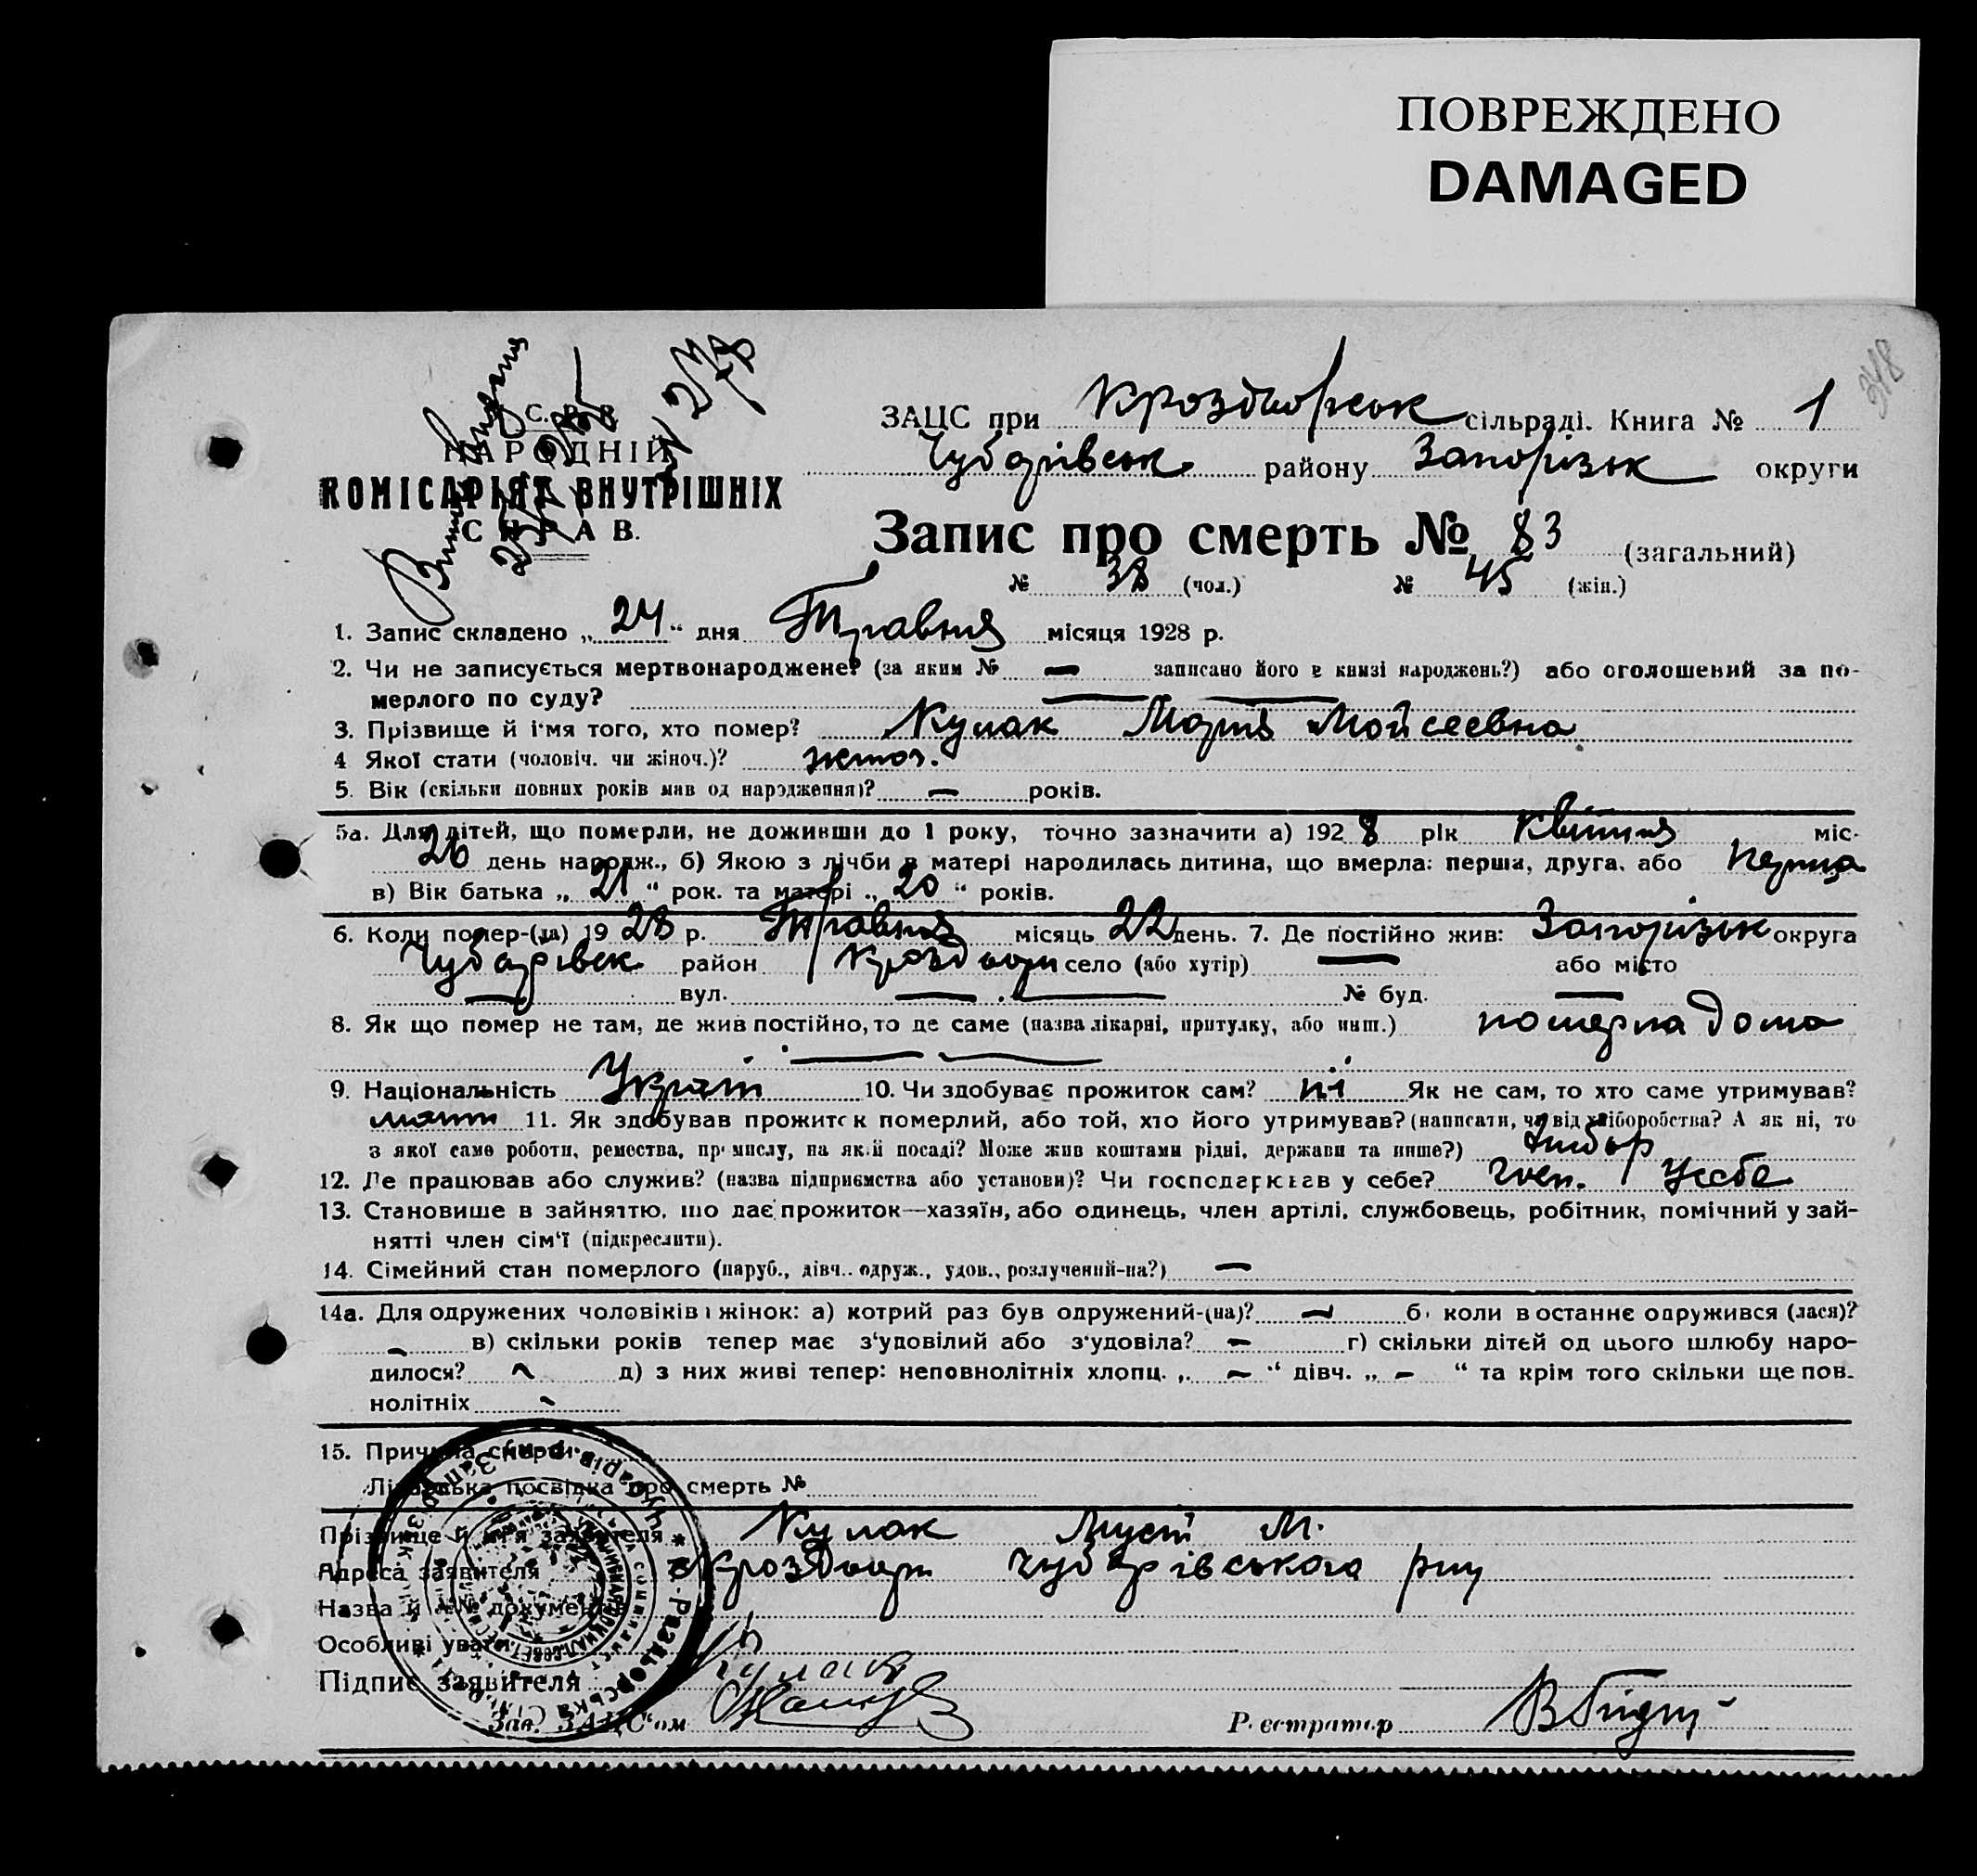 ПОВРЕЖДЕНО
DAMAGED
348
У. С. Р. Р.
НАРОДНІЙ
КОМІСАРІЯТ ВНУТРІШНІХ
СПРАВ.
ЗАЦС при Кроздиорськ сільраді. Книга № 1
Чубарівськ району Запорізьк округи
Запис про смерть № 83 (загальний)
№ 38 (чол.) № 45 (жін.)
1. Запис складено „ 24 “ дня Травня місяця 1928 р.
2. Чи не записується мертвонароджене? (за яким № — записано його в книзі народжень?) або оголошений за по-
мерлого по суду? — —
3. Прізвище й і'мя того, хто помер? Кулак Марія Мойсеевна
4 Якої стати (чоловіч. чи жіноч.)? жіноч.
5. Вік (скільки повних років мав од народження)? — років.
5а. Для дітей, що померли, не доживши до 1 року, точно зазначити а) 1928 рік Квітня міс.
26 день народж., б) Якою з лічби в матері народилась дитина, що вмерла: перша, друга, або перша
в) Вік батька „ 21 “ рок. та матері „ 20 “ років.
6. Коли помер-(ла) 1928 р. Травня місяць 22 день. 7. Де постійно жив: Запорізьк округа
Чубарівськ район Кроздиори село (або хутір) — або місто
— вул. — — № буд. —
8. Як що помер не там, де жив постійно, то де саме (назва лікарні, притулку, або инш.) померла дома
— —
9. Національність Україн 10. Чи здобуває прожиток сам? ні Як не сам, то хто саме утримував?
мати 11. Як здобував прожиток померлий, або той, хто його утримував? (написати, чи від хліборобства? А як ні, то
з якої саме роботи, ремества, промислу, на якій посаді? Може жив коштами рідні, держави та инше?) Хлібор
12. Де працював або служив? (назва підприємства або установи)? Чи господарював у себе? Госп. У себе
13. Становище в зайняттю, що дає прожиток—хазяїн, або одинець, член артілі, службовець, робітник, помічний у зай-
нятті член сім'ї (підкреслити).
14. Сімейний стан померлого (паруб., дівч.. одруж., удов., розлучений-на?) —
14а. Для одружених чоловіків і жінок: а) котрий раз був одружений-(на)? — б) коли в останнє одружився (лася)?
— в) скільки років тепер має з'удовілий або з'удовіла? — г) скільки дітей од цього шлюбу наро-
дилося? — д) з них живі тепер: неповнолітніх хлопц. „ — “ дівч. „ — “ та крім того скільки ще пов-
нолітніх —
15. Причина смерти
Лікарська посвідка про смерть №
Прізвище й ім'я заявителя Кулак М.
Адреса заявителя Кроздиори Чубарівського р-ну
Назва й № документів
Особливі уваги
Підпис заявителя Кулак
Зав. ЗАЦС'ом
Реєстратор